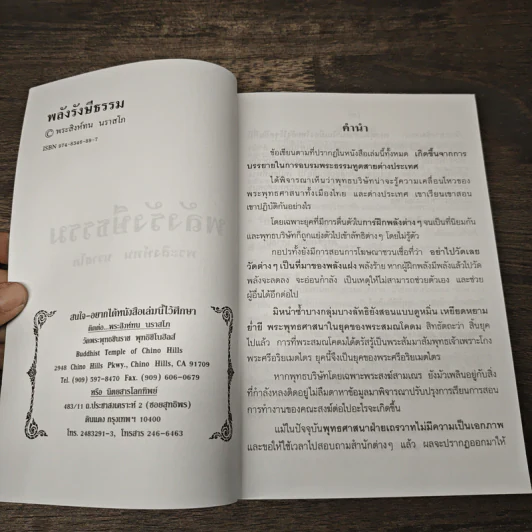 พลังรังษีธรรม
© พระสิงห์ทน นราสโภ
ISBN 974-8349-59-7
สนใจ-อยากได้หนังสือเล่มนี้ไว้ศึกษา
ติดต่อ...พระสิงห์ทน นราสโภ
วัดพระพุทธชินราช พุทธชิโนฮิลส์
Buddhist Temple of Chino Hills
2948 Chino Hills Pkwy., Chino Hills, CA 91709
Tel. (909) 597-8470 Fax. (909) 606-0679
หรือ นิตยสารโลกทิพย์
483/11 ถ.ประชาสงเคราะห์ 2 (ซอยสุทธิพร)
ดินแดง กรุงเทพฯ 10400
โทร. 2483291-3, โทรสาร 246-6463
คำนำ
ข้อเขียนตามที่ปรากฏในหนังสือเล่มนี้ทั้งหมด เกิดขึ้นจากการ
บรรยายในการอบรมพระธรรมทูตสายต่างประเทศ
ได้พิจารณาเห็นว่าพุทธบริษัทน่าจะรู้ความเคลื่อนไหวของ
พระพุทธศาสนาทั้งเมืองไทย และต่างประเทศ เขาเรียนเขาสอน
เขาปฏิบัติกันอย่างไร
โดยเฉพาะยุคที่มีการตื่นตัวในการฝึกพลังต่างๆ จนเป็นที่นิยมกัน
และพุทธบริษัทก็ถูกแย่งตัวไปเข้าลัทธิต่างๆ โดยไม่รู้ตัว
กอปรทั้งยังมีการสอนการโฆษณาชวนเชื่อที่ว่า อย่าไปวัดเลย
วัดต่างๆ เป็นที่มาของพลังแฝง พลังร้าย หากผู้ฝึกพลังมีพลังแล้วไปวัด
พลังจะลดลง จะอ่อนกำลัง เป็นเหตุให้ไม่สามารถช่วยตัวเอง และช่วย
ผู้อื่นได้อีกต่อไป
มิหนำซ้ำบางกลุ่มบางลัทธิยังสอนแบบดูหมิ่น เหยียดหยาม
ย่ำยี พระพุทธศาสนาในยุคของพระสมณโคดม สิทธัตถะว่า สิ้นยุค
ไปแล้ว การที่พระสมณโคดมได้ตรัสรู้เป็นพระสัมมาสัมพุทธเจ้าเพราะโกง
พระศรีอริยเมตไตร ยุคนี้จึงเป็นยุคของพระศรีอริยเมตไตร
หากพุทธบริษัทโดยเฉพาะพระสงฆ์สามเณร ยังมัวเพลินอยู่กับสิ่ง
ที่กำลังหลงติดอยู่ไม่ลืมตาหาข้อมูลมาพิจารณาปรับปรุงการเรียนการสอน
การทำงานของคณะสงฆ์ต่อไปอะไรจะเกิดขึ้น
แม้ในปัจจุบันพุทธศาสนาฝ่ายเถรวาทไม่มีความเป็นเอกภาพ
และขอให้ใช้เวลาไปสอบถามสำนักต่างๆ แล้ว ผลจะปรากฏออกมาให้